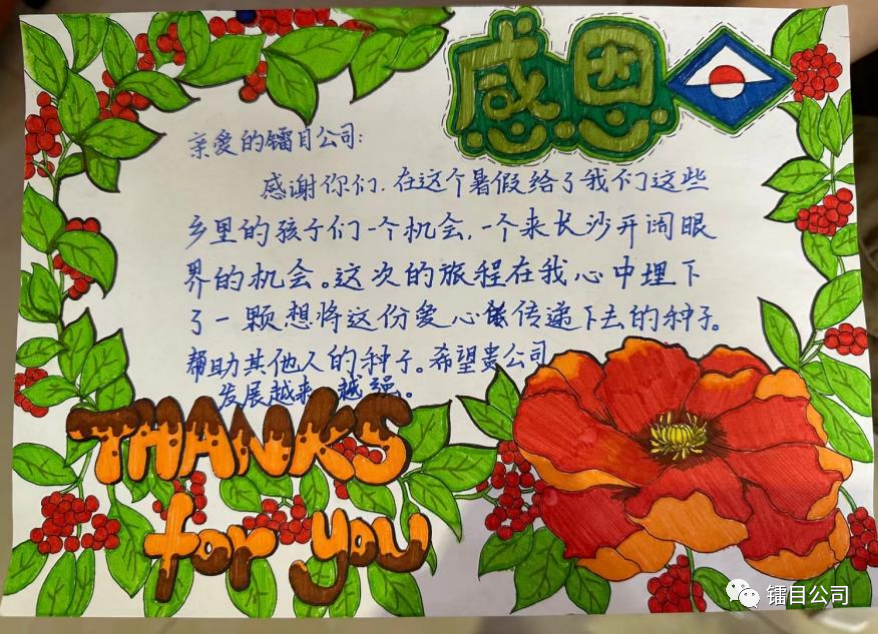 感恩
亲爱的镭目公司:
感谢你们.在这个暑假给了我们这些
乡里的孩子们一个机会,一个来长沙开阔眼
界的机会。这次的旅程在我心中埋下
了一颗想将这份爱心传递下去的种子。
帮助其他人的种子。希望贵公司
发展越来越强。
THANKS
for you
镭目公司